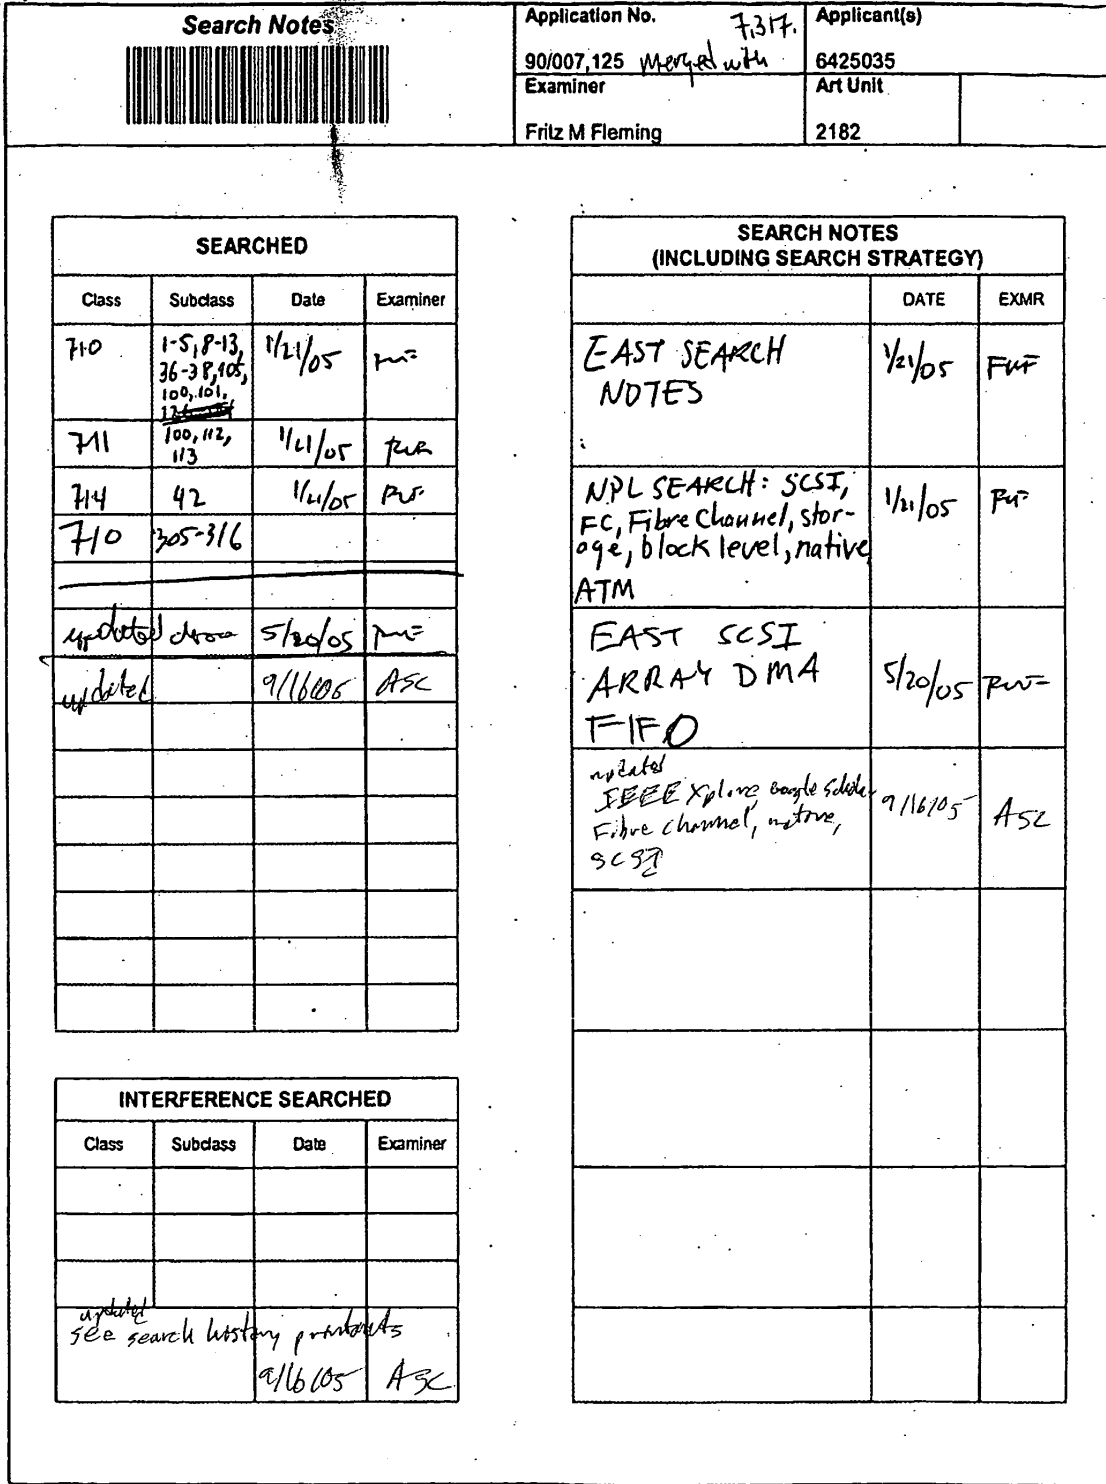 Search Notes
Application No.
7,317.
90/007,125 Merged with
Applicant(s)
6425035
Examiner
Fritz M Fleming
Art Unit
2182
SEARCHED
Class Subclass Date Examiner
710 1-5, 8-13, 1/21/05 FMF
36-38, 105,
100, 101,
711 100, 112, 1/21/05 FMF
113
714 42 1/21/05 FMF
710 305-316
updated above 5/20/05 FMF
updated 9/16/05 ASC
INTERFERENCE SEARCHED
Class Subclass Date Examiner
updated
see search history printouts
9/16/05 ASC
SEARCH NOTES
(INCLUDING SEARCH STRATEGY)
DATE EXMR
EAST SEARCH 1/21/05 FMF
NOTES
NPL SEARCH: SCSI, 1/21/05 FMF
FC, Fibre Channel, stor-
age, block level, native
ATM
EAST SCSI
ARRAY DMA 5/20/05 FMF
FIFO
updated
IEEE Xplore, Google Scholar 9/16/05 ASC
Fibre channel, native,
SCSI